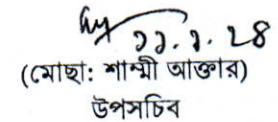 ১১.১.২৪
(মোছা: শাম্মী আক্তার)
উপসচিব